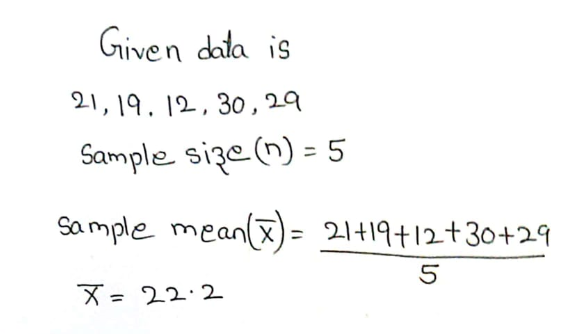 Given data is
21, 19, 12, 30, 29
Sample size (n) = 5
Sample mean (x̅) = 21+19+12+30+29
5
x̅ = 22.2